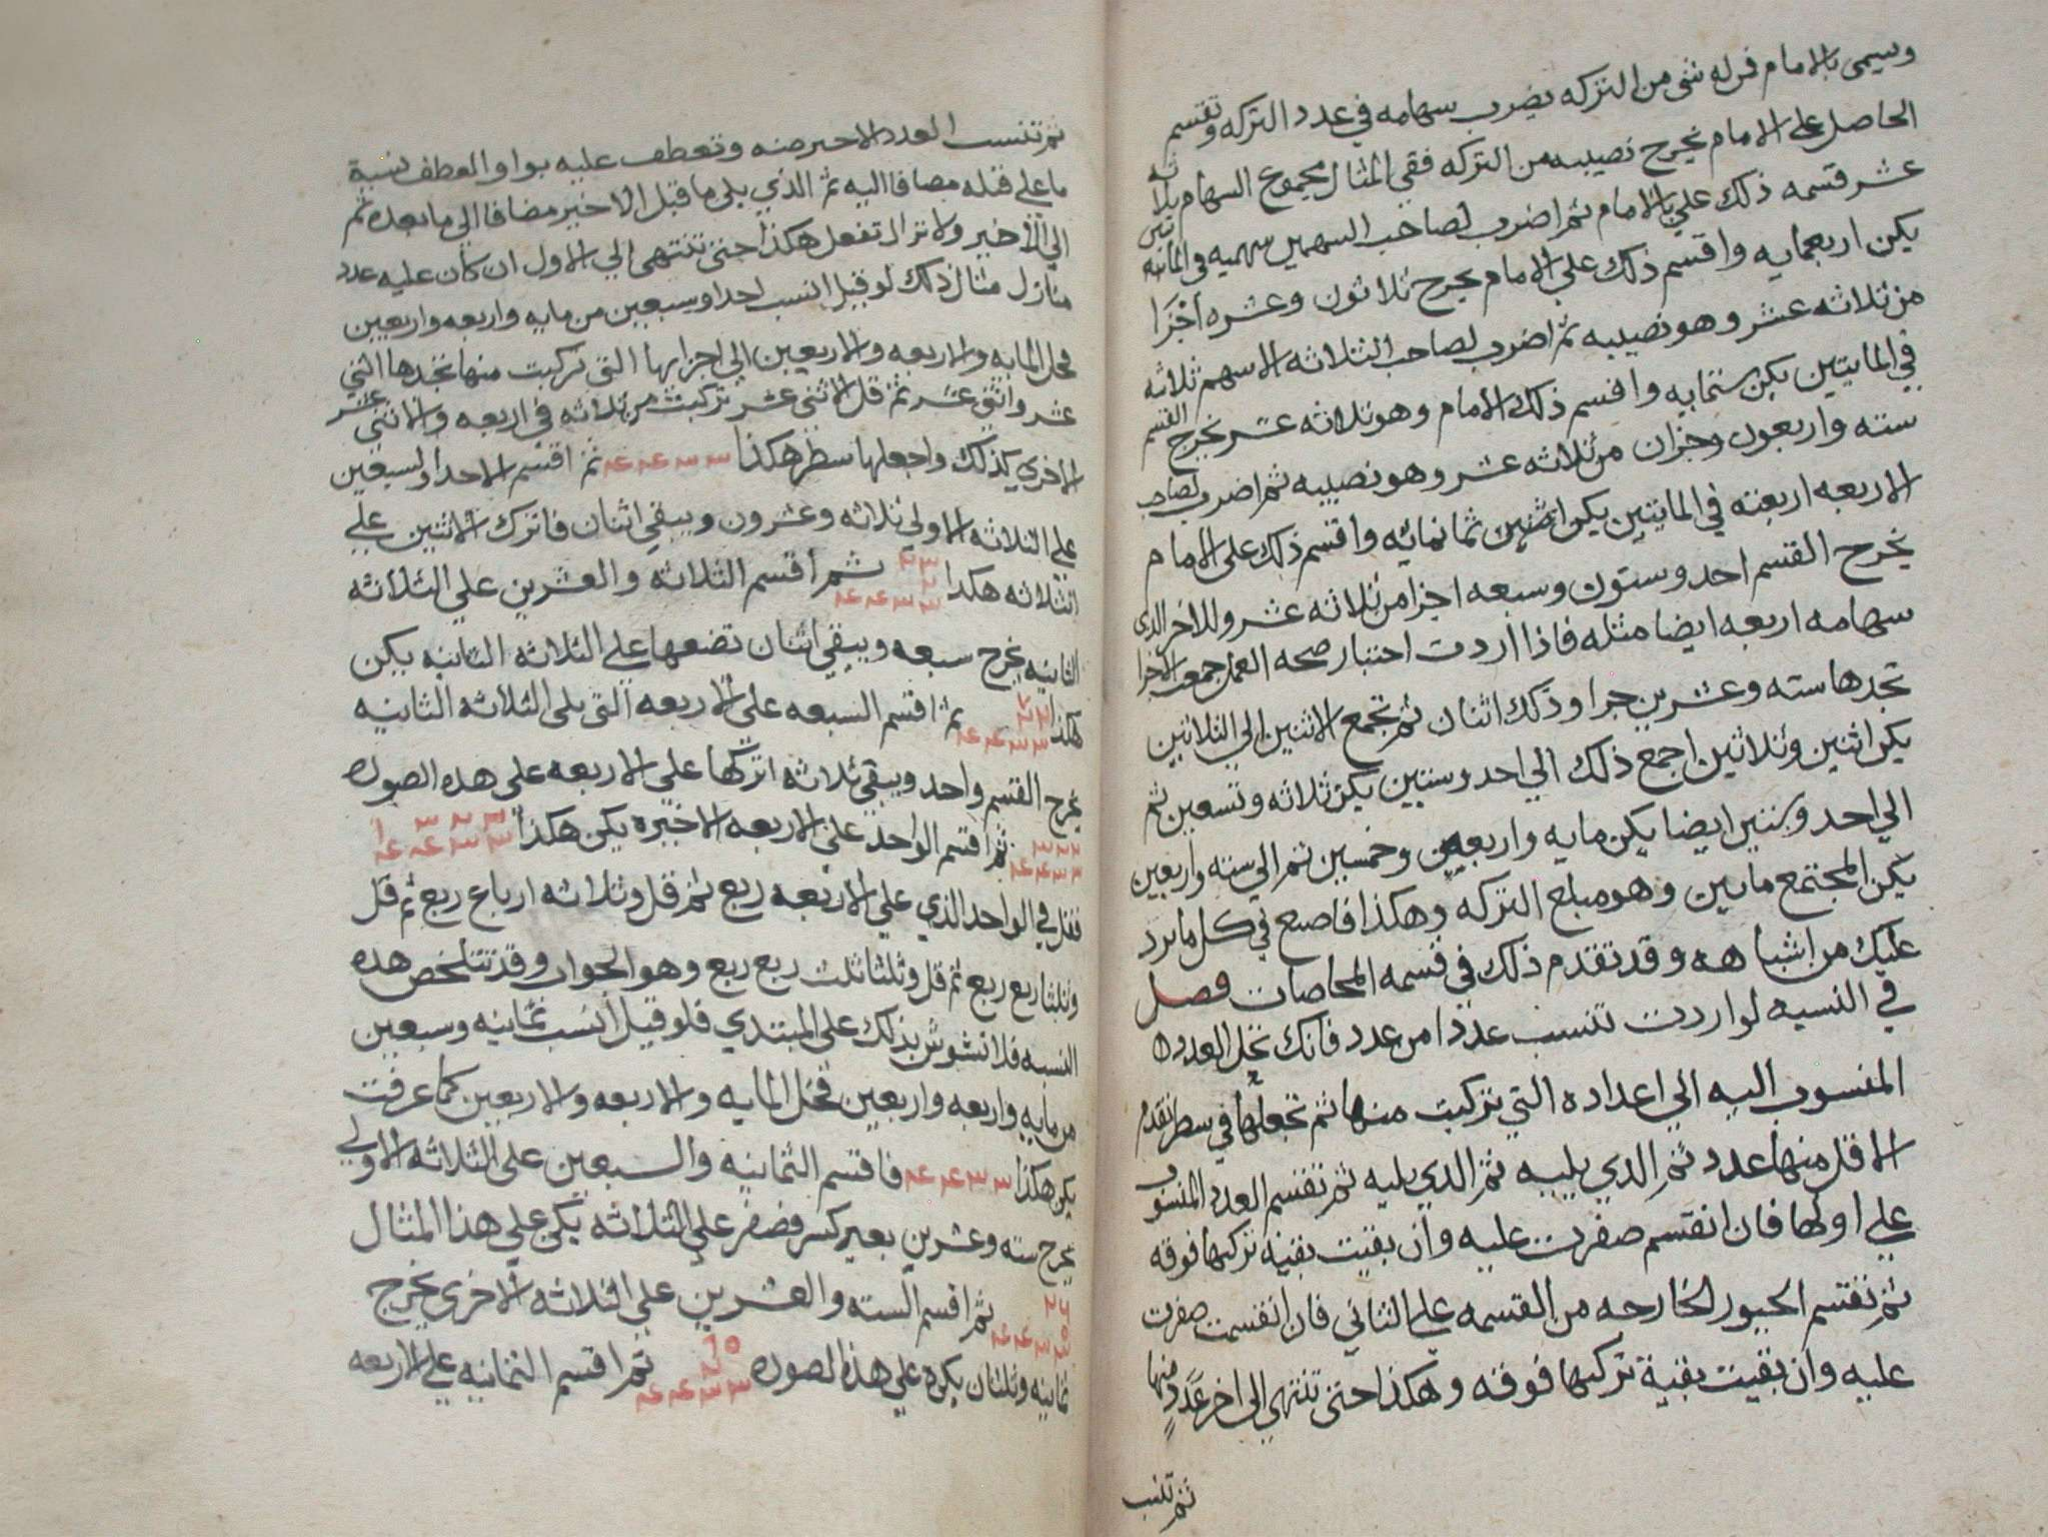 ويسمى بالامام فمن له شى من التركه يضرب سهامه في عدد التركه وتقسم
الحاصل على الامام يخرج نصيبه من التركه ففي المثال مجموع السهام ثلاثه
عشر قسمه ذلك على بالامام ثم اضرب لصاحب السهمين سهميه في المأتين
يكن اربعمايه واقسم ذلك على الامام يخرج ثلاثون وعشره اجزا
من ثلاثه عشر وهو نصيبه ثم اضرب لصاحب الثلاثه الاسهم ثلاثه
في المايتين يكن ستمايه واقسم ذلك الامام وهو ثلاثه عشر يخرج القسم
سته واربعون وجزان من ثلاثه عشر وهو نصيبه ثم اضرب لصاحب
الاربعه اربعته في المايتين يكن ثمانمائه واقسم ذلك على الامام
يخرج القسم احد وستون وسبعه اجزا من ثلاثه عشر وللاخر الذى
سهامه اربعه ايضا مثله فاذا اردت اختبار صحه العمل جمعت الاجزا
تجدها سته وعشرين جزا وذلك اثنان ثم تجمع الاثنين الي الثلاثين
يكن اثنين وثلاثين اجمع ذلك الي احد وستين يكن ثلاثه وتسعين ثم
الي احد وستين ايضا يكن مايه واربعه وخمسين ثم الي سته واربعين
يكن المجتمع مايتين وهو مبلغ التركه وهكذا فاصنع في كل ما يرد
عليك من اشباهه وقد تقدم ذلك في قسمه المحاصات فصل
في النسبه لو اردت تنسب عددا من عدد فانك تحل العدد
المنسوب اليه الي اعداده التي تركبت منها ثم تجعلها في سطر تقدم
الاقل منها عدد ثم الذي يليه ثم الذي يليه ثم تقسم العدد المنسوب
علي اولها فان انقسم صفرت عليه وان بقيت بقيه تركبها فوقه
ثم تقسم الخارجه من القسمه علي الثاني فان انقسمت صفرت
عليه وان بقيت بقية تركبها فوقه وهكذا حتى تنتهي الى اخر عدد منها
ثم تنسب
ثم تنسب العدد الاخير منه وتعطف عليه بواو العطف نسبة
ما علي قبله مضافا اليه ثم الذي يلى ما قبل الاخير مضافا الى ما بعده ثم
الي الاخير ولا تزال تفعل هكذا حتى تنتهى الي الاول ان كان عليه عدد
منازل مثال ذلك لو قيل انسب احدا وسبعين من مايه واربعه واربعين
فحل المايه والاربعه والاربعين الي اجزايها التى تركبت منها تجدها اثني
عشر واثنى عشر ثم قل الاثنى عشر تركبت من ثلاثه في اربعه والاثنى عشر
الاخري كذلك واجعلها سطر هكذا ٣ ٣ ٤ ٤ ثم اقسم الاحد والسبعين
على الثلاثه الاولي ثلاثه وعشرون ويبقي اثنان فاترك الاثنين علي
الثلاثه هكذا ٣ ٣ ٤ ٤ ثم اقسم الثلاثه والعشرين علي الثلاثه
الثانيه يخرج سبعه ويبقي اثنان تضعها علي الثلاثه الثانيه يكن
هكذا ٣ ٣ ٤ ٤ ثم اقسم السبعه علي الاربعه التى يلى الثلاثه الثانيه
يخرج القسم واحد ويبقي ثلاثه اتركها على الاربعه على هذه الصوره
٣ ٣ ٤ ٤ ثم اقسم الواحد على الاربعه الاخيره يكن هكذا ٣ ٣ ٤ ٤
فقل في الواحد الذي علي الاربعه ربع ثم قل وثلاثه ارباع ربع ثم قل
وثلثا ربع ربع ثم قل وثلثا ثلث ربع ربع وهو الجواب وقد تتلخص هذه
النسبه فلا تشوش بذلك على المبتدي فلو قيل انسب ثمانيه وسبعين
من مايه واربعه واربعين فحل المايه والاربعه والاربعين كما عرفت
يكن هكذا ٣ ٣ ٤ ٤ فاقسم الثمانيه والسبعين على الثلاثه الاولي
يخرج سته وعشرين بغير كسر فصفر علي الثلاثه يكن علي هذا المثال
٣ ٣ ٤ ٤ ثم اقسم السته والعشرين على الثلاثه الاخري يخرج
ثمانيه وثلثان يكن علي هذه الصوره ٣ ٣ ٤ ٤ ثم اقسم الثمانيه علي الاربعه